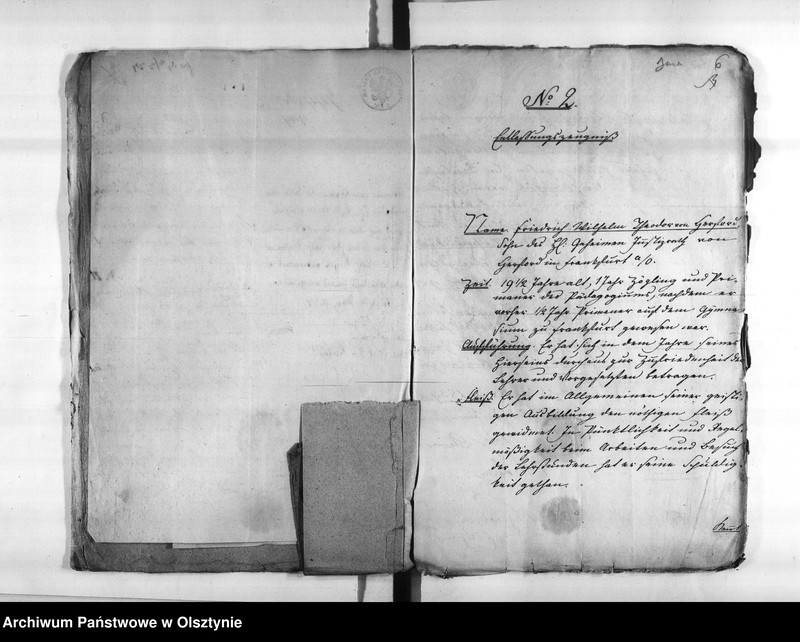 6
No 2.
Entlassungszeugniß
Name. Friedrich Wilhelm Theodor von Herford
Sohn des H. Geheimen Justizrath von
Herford in Frankfurt a/O.
Zeit. 19 1/2 Jahre alt, 1 Jahr Zögling und Pri-
maner des Pädagogiums, nachdem er
vorher 1/2 Jahr Primaner auf dem Gymna-
sium zu Frankfurt gewesen war.
Aufführung. Er hat sich in dem Jahre seines
Hierseins durchaus zur Zufriedenheit der
Lehrer und Vorgesetzten betragen.
Fleiß. Er hat im Allgemeinen seiner geisti-
gen Ausbildung den nöthigen Fleiß
gewidmet. In Pünktlichkeit und Regel-
mäßigkeit beim Arbeiten und Besuch
der Lehrstunden hat er seine Schuldig-
keit gethan.
Archiwum Państwowe w Olsztynie